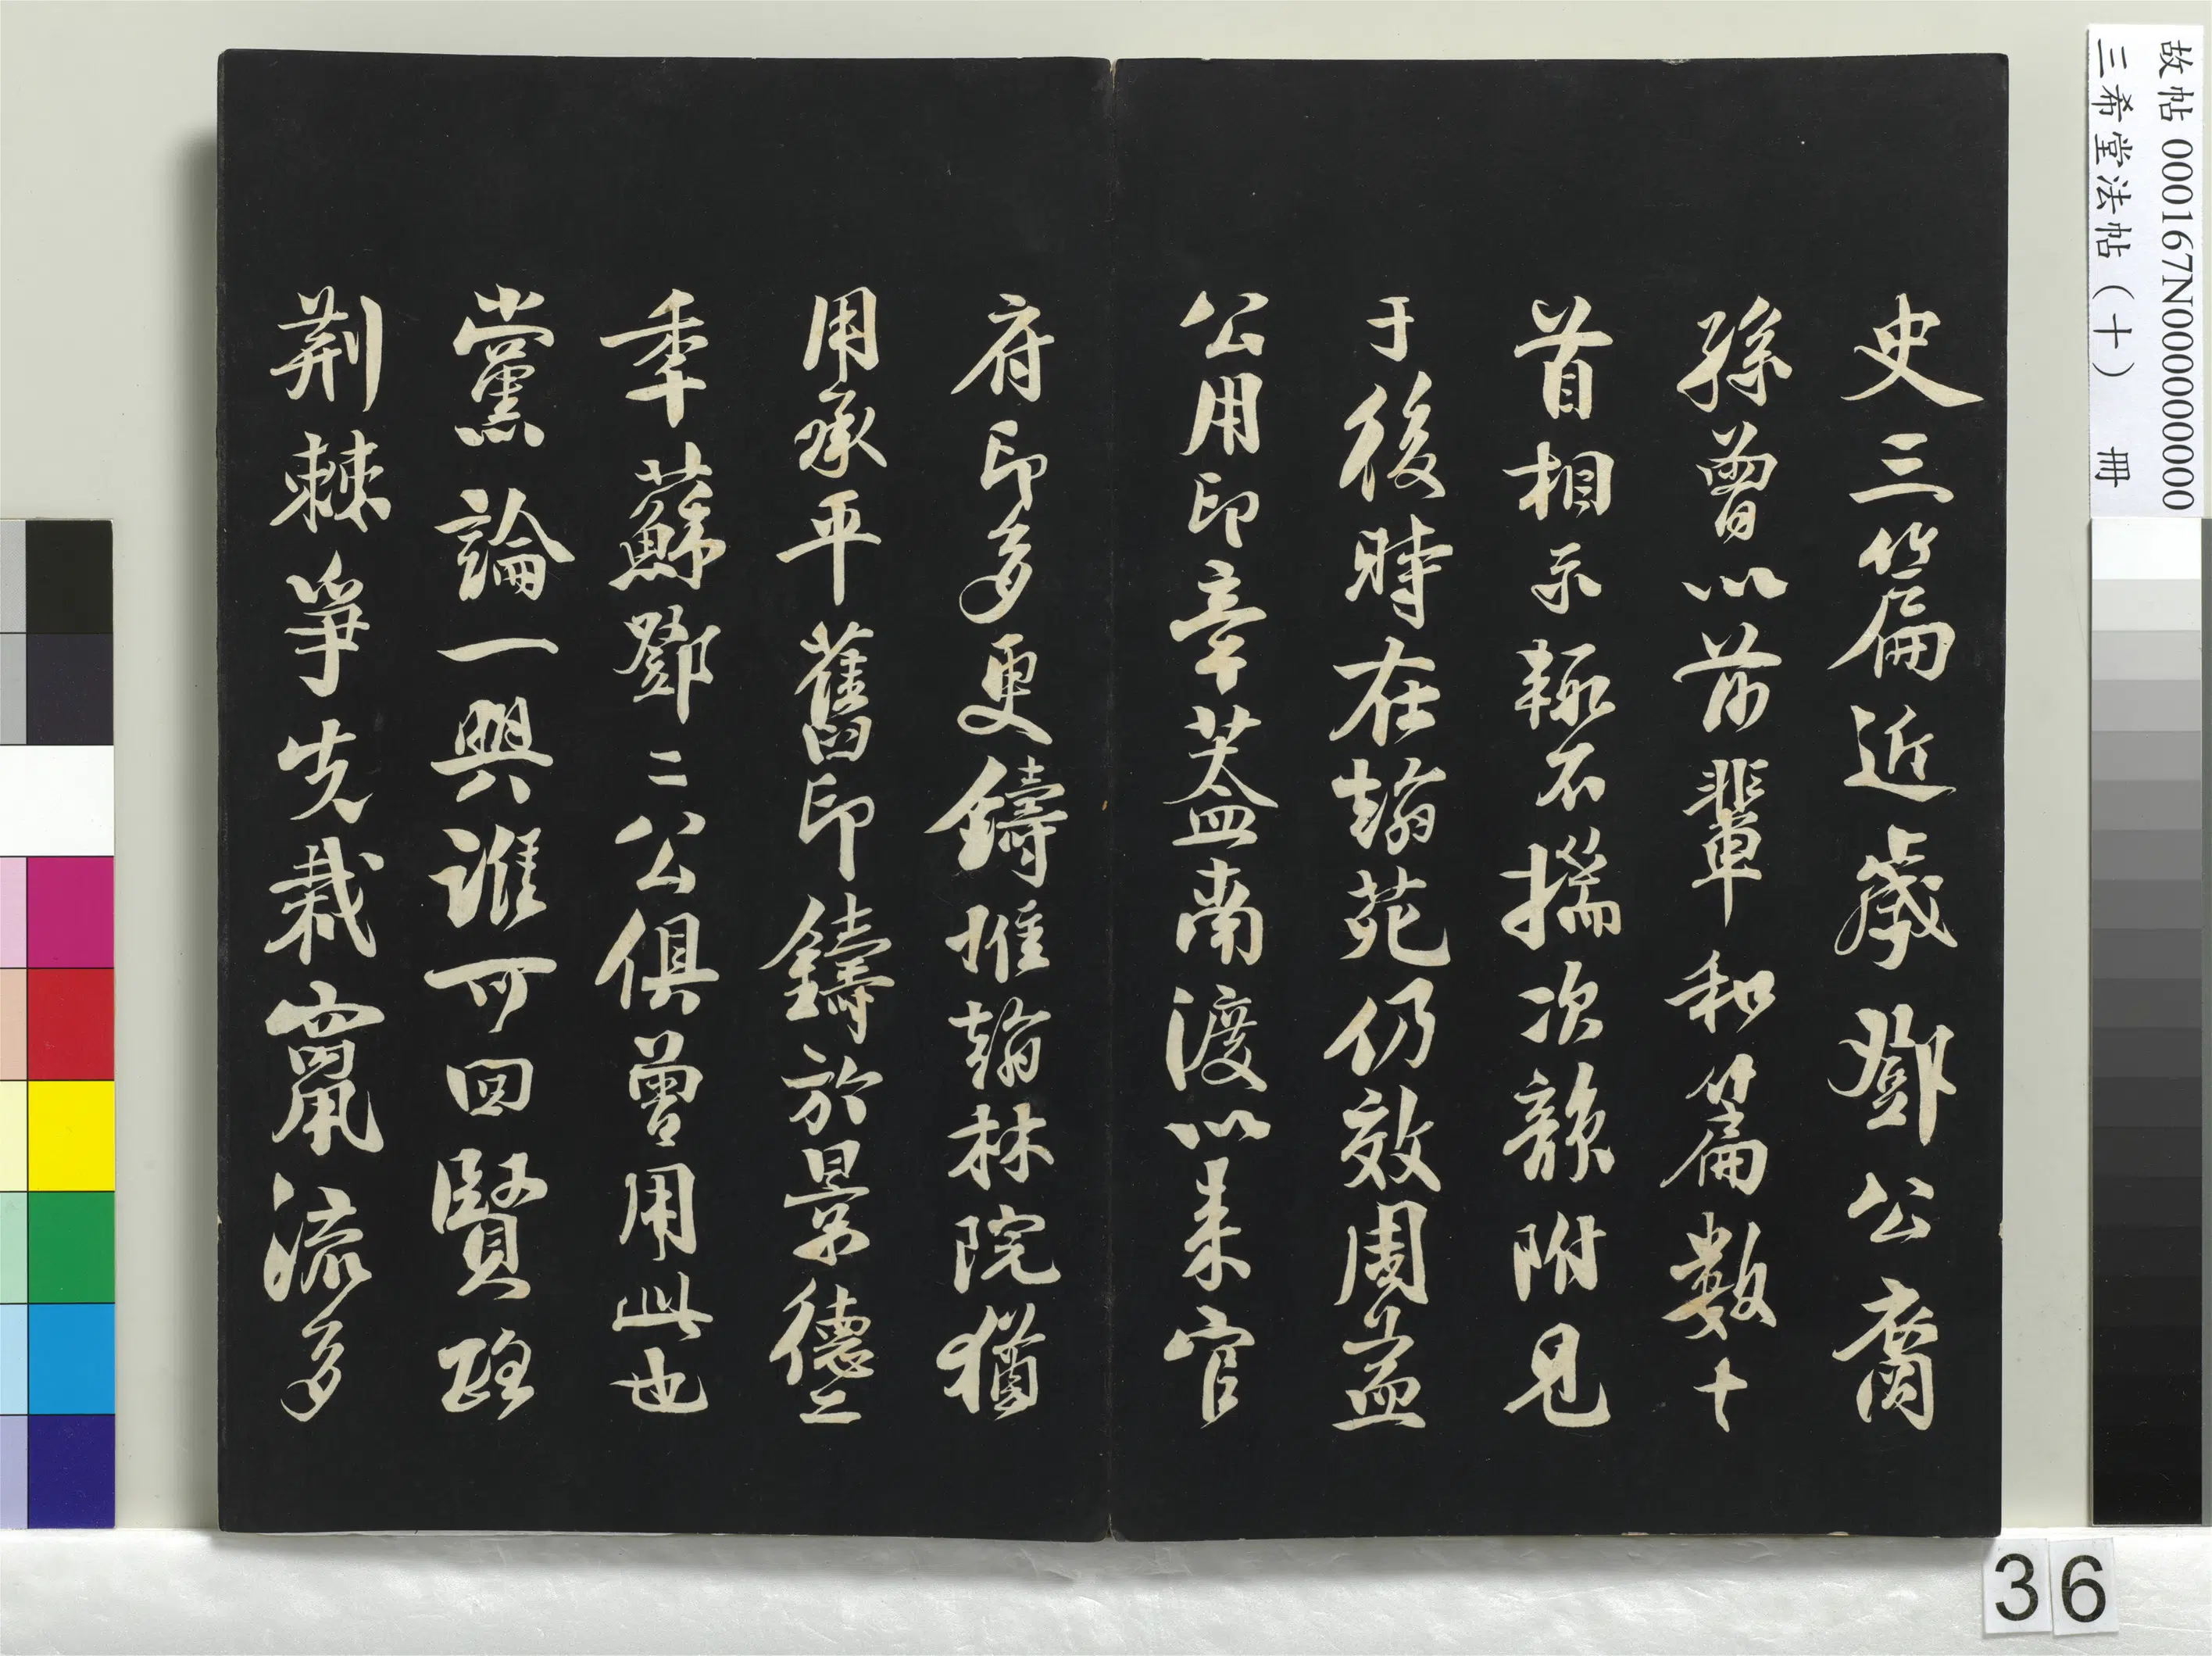 史三篇近歲鄧公裔
孫曾以前輩和篇數十
首相示輙不揣次韻附見
于後時在翰苑仍效周益
公用印章蓋南渡以来官
府印多更鑄惟翰林院猶
用承平舊印鑄於景德二
年蘇鄧二公俱曾用此也
黨論一興誰可回賢路
荆棘爭先栽竄流多
故帖 000167N000000000
三希堂法帖（十） 冊
36